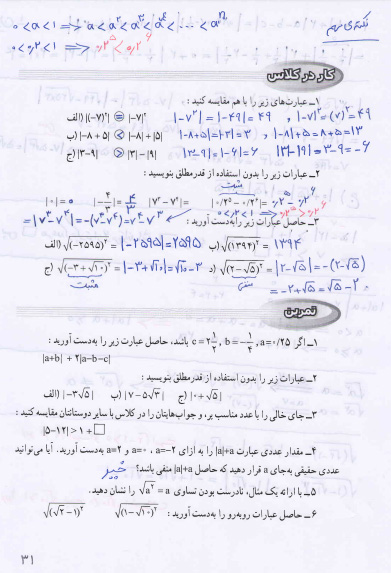 نکته‌ی مهم
0<a<1 ⟹ a<a²<a³<a⁴<...<aⁿ
0<0/2<1 ⟹ 0/2⁵<0/2⁶
کار در کلاس
۱ـ عبارت‌های زیر را با هم مقایسه کنید :
الف) |(−۷)²| = |−۷|² |−7²| = |−49| = 49 , |−7|² = (7)² = 49
ب) |−۸+۵| < |−۸|+|۵| |−8+5| = |−3| = 3 , |−8|+|5| = 8+5 = 13
ج) |۳−۹| > |۳|−|۹| |3−9| = |−6| = 6 , |3|−|9| = 3−9 = −6
۲ـ عبارات زیر را بدون استفاده از قدرمطلق بنویسید :
مثبت
|۰| = 0 |−۴/۳| = 4/3 |۷³−۷⁴| = |۰/۲⁵−۰/۲⁶| = 0/2⁵−0/2⁶
0<0/2<1 ⟹ 0/2⁵>0/2⁶
۳ـ حاصل عبارات زیر را به‌دست آورید : = |7³−7⁴| = −(7³−7⁴) = 7⁴−7³
الف) √(−۲۵۹۵)² = |−2595| = 2595 ب) √(۱۳۹۴)² = 1394
ج) √(−۳+√۱۰)² = |−3+√10| = √10−3 د) √(۲−√۵)² = |2−√5| = −(2−√5)
مثبت منفی = −2+√5 = √5−2
تمرین
۱ـ اگر a=۰/۲۵ , b=−۱/۴ , c=۲ ۱/۲ باشد، حاصل عبارت زیر را به‌دست آورید :
|a+b| + ۲|a−b−c|
۲ـ عبارات زیر را بدون استفاده از قدرمطلق بنویسید :
الف) |−۳√۵| ب) |۷−۵√۳| ج) |۰+√۵|
۳ـ جای خالی را با عدد مناسب پر، و جواب‌هایتان را در کلاس با سایر دوستانتان مقایسه کنید :
|۵−۱۲| > ۱+□
۴ـ مقدار عددی عبارت |a|+a را به ازای a=−۲ ، a=۰ و a=۲ به‌دست آورید. آیا می‌توانید
عددی حقیقی به‌جای a قرار دهید که حاصل |a|+a منفی باشد؟ خیر
۵ـ با ارائه یک مثال، نادرست بودن تساوی √a² = a را نشان دهید.
۶ـ حاصل عبارات روبه‌رو را به‌دست آورید : √(۱−√۱۰)² √(√۲−۱)²
۳۱